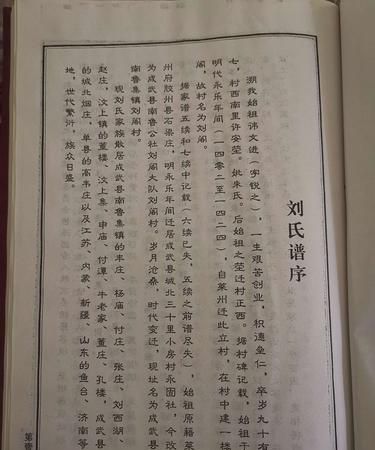 刘氏谱序
溯我始祖讳文进（字锐之），一生艰苦创业，积德垒仁，卒岁九十有
七，村西南里许安茔。妣朱氏。后始祖之茔迁村正西。据村碑记载，始祖于
明代永乐年间（一四零三至一四二四），自莱州迁此立村，在村中建一楼
阁，故村名为刘阁。
据家谱五续和七续中记载（六续已失，五续之前谱尽失），始祖原籍莱
州府胶州县石梁庄，明永乐年间迁居成武县城北三十里小房村永固社，今改
为成武县南鲁公社刘阁大队刘阁村。岁月沧桑，时代变迁，现址名为成武县
南鲁集镇刘阁村。
现刘氏家族散居成武县南鲁集镇的丰庄、杨庙、付庄、张庄、刘西湖、
赵庄，汶上镇的董楼、汶上集、申庙、付谭、牛老家、董庄、孔楼，成武县
的城北烟庄，单县的高韦庄以及江苏、内蒙、新疆、山东的鱼台、济南等
地，世代繁衍，族众日盛。
第壹